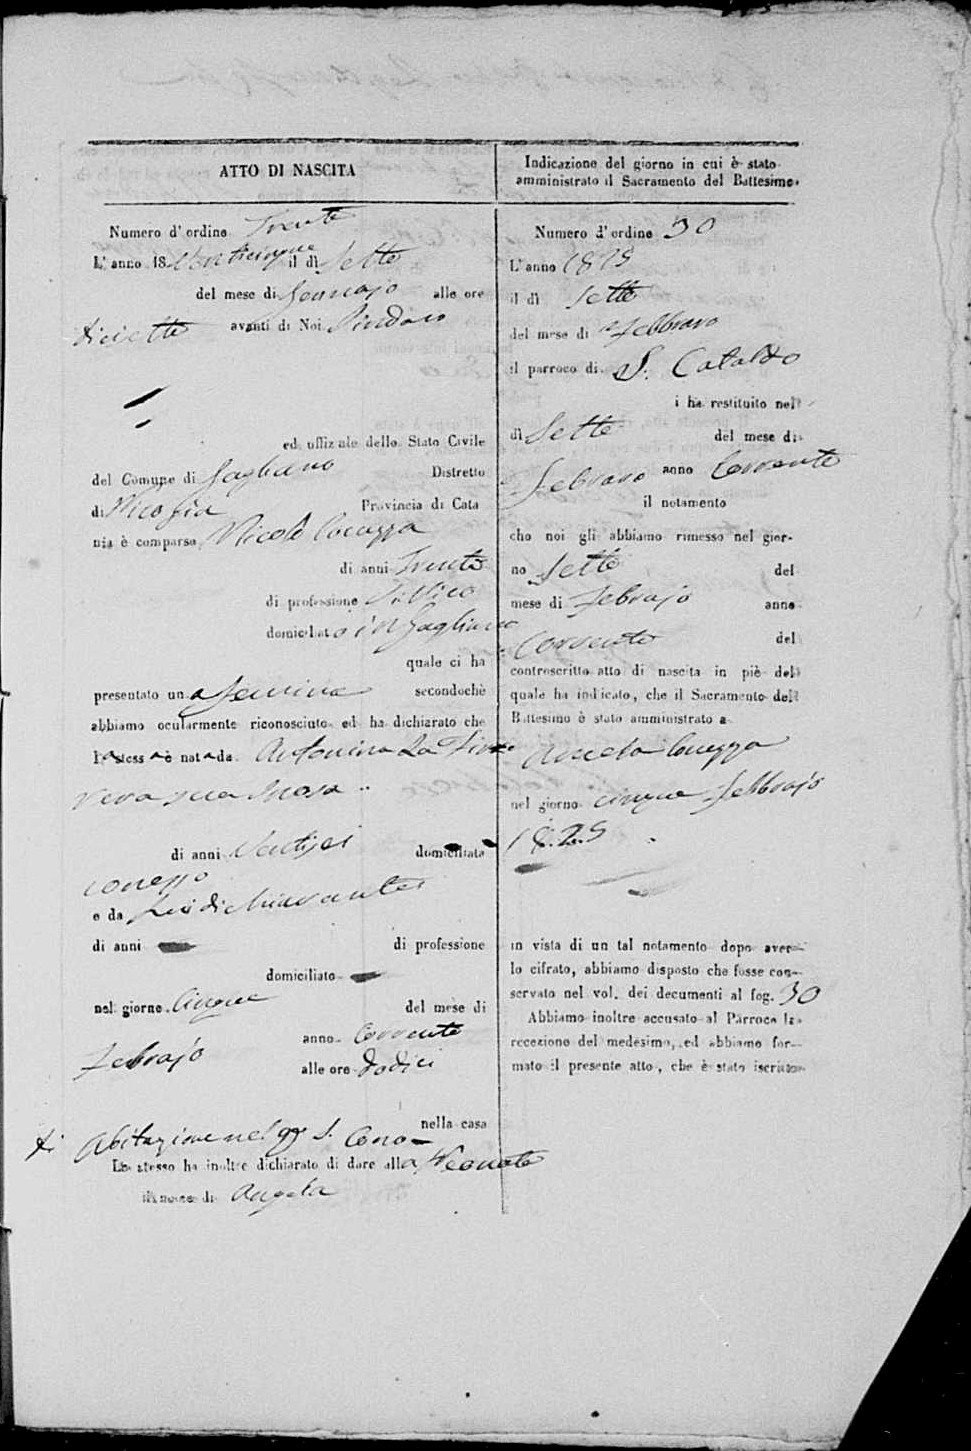 ATTO DI NASCITA
Numero d'ordine Trenta
L'anno 18 Venticinque il dì Sette
del mese di Gennajo alle ore
diciette avanti di Noi Sindaco
ed uffiziale dello Stato Civile
del Comune di Gagliano Distretto
di Nicosia Provincia di Cata
nia è comparso Nicolò Cocuzza
di anni Trenta
di professione Villico
domiciliato in Gagliano
quale ci ha
presentato una femina secondochè
abbiamo ocularmente riconosciuto ed ha dichiarato che
la stessa è nata da Antonina La
vera sua Sposa
di anni domiciliata
e da Lui dichiarante
di anni di professione
domiciliato
nel giorno Cinque del mese di
Febrajo anno Corrente
alle ore dodici
nella casa
di Abitazione nel S. Cono
Lo stesso ha inoltre dichiarato di dare alla Neonata
il nome di Angela
Indicazione del giorno in cui è stato
amministrato il Sacramento del Battesimo.
Numero d'ordine 30
L'anno 1825
il dì Sette
del mese di Febbraro
il parroco di S. Cataldo
i ha restituito nel
dì Sette del mese di
Febraro anno Corrente
il notamento
che noi gli abbiamo rimesso nel gior-
no Sette del
mese di Febrajo anno
Corrente del
controscritto atto di nascita in piè del
quale ha indicato, che il Sacramento del
Battesimo è stato amministrato a
Angela Cocuzza
nel giorno cinque Febbrajo
1825
in vista di un tal notamento dopo aver-
lo cifrato, abbiamo disposto che fosse con-
servato nel vol. dei documenti al fog. 30
Abbiamo inoltre accusato al Parroco la
recezione del medesimo, ed abbiamo for-
mato il presente atto, che è stato iscritto